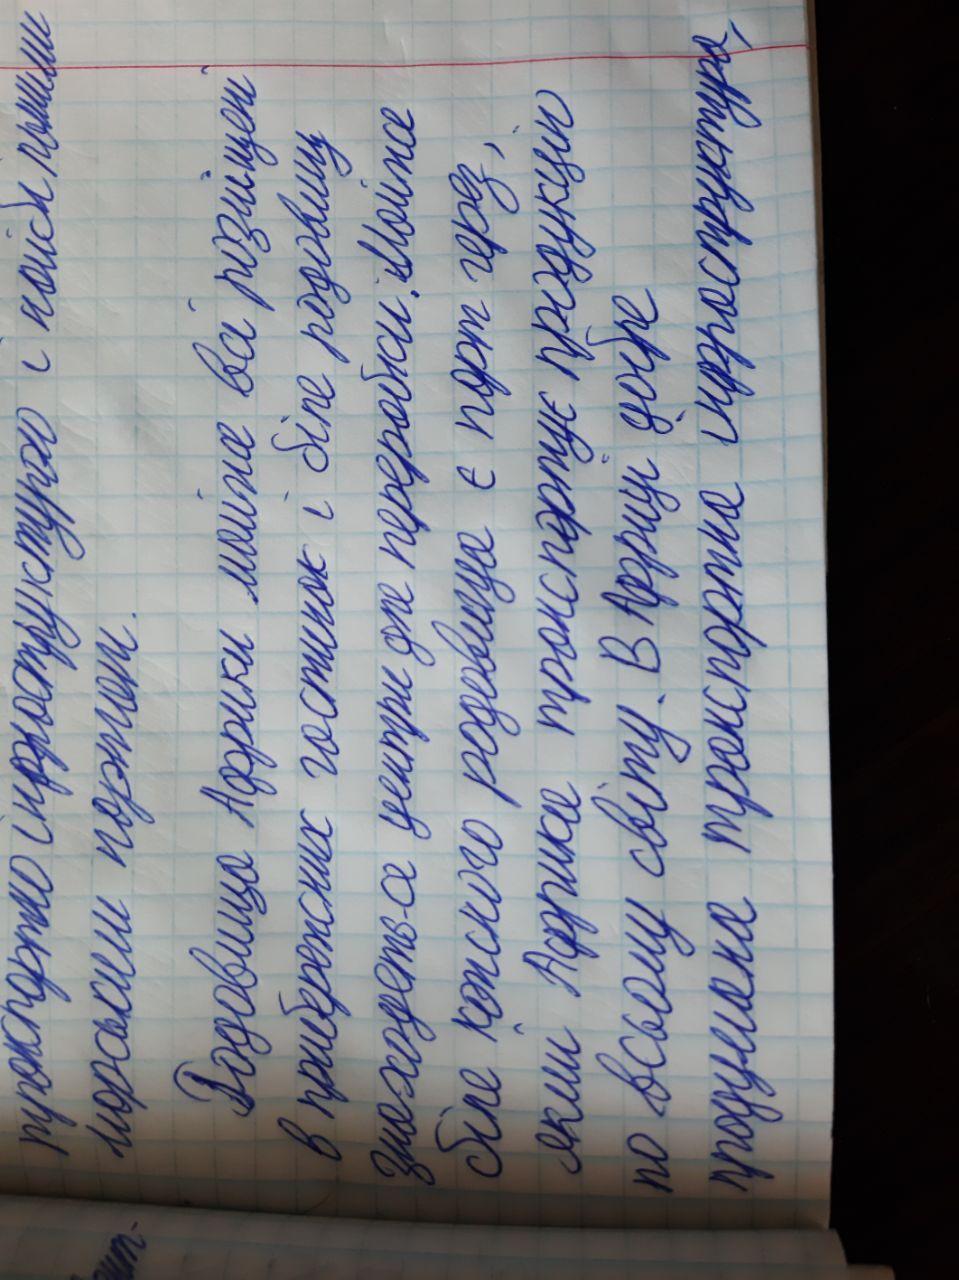 транспортно інфраструктурою і найбільшими
морськими портами.
Родовища Африки майже всі розміщені
в прибережних частинах і біля родовищ
знаходяться центри для переробки. Майже
біля кожного родовища є порт через,
який Африка транспортує продукцію
по всьому світу. В Африці добре
продумана транспортна інфраструктура,